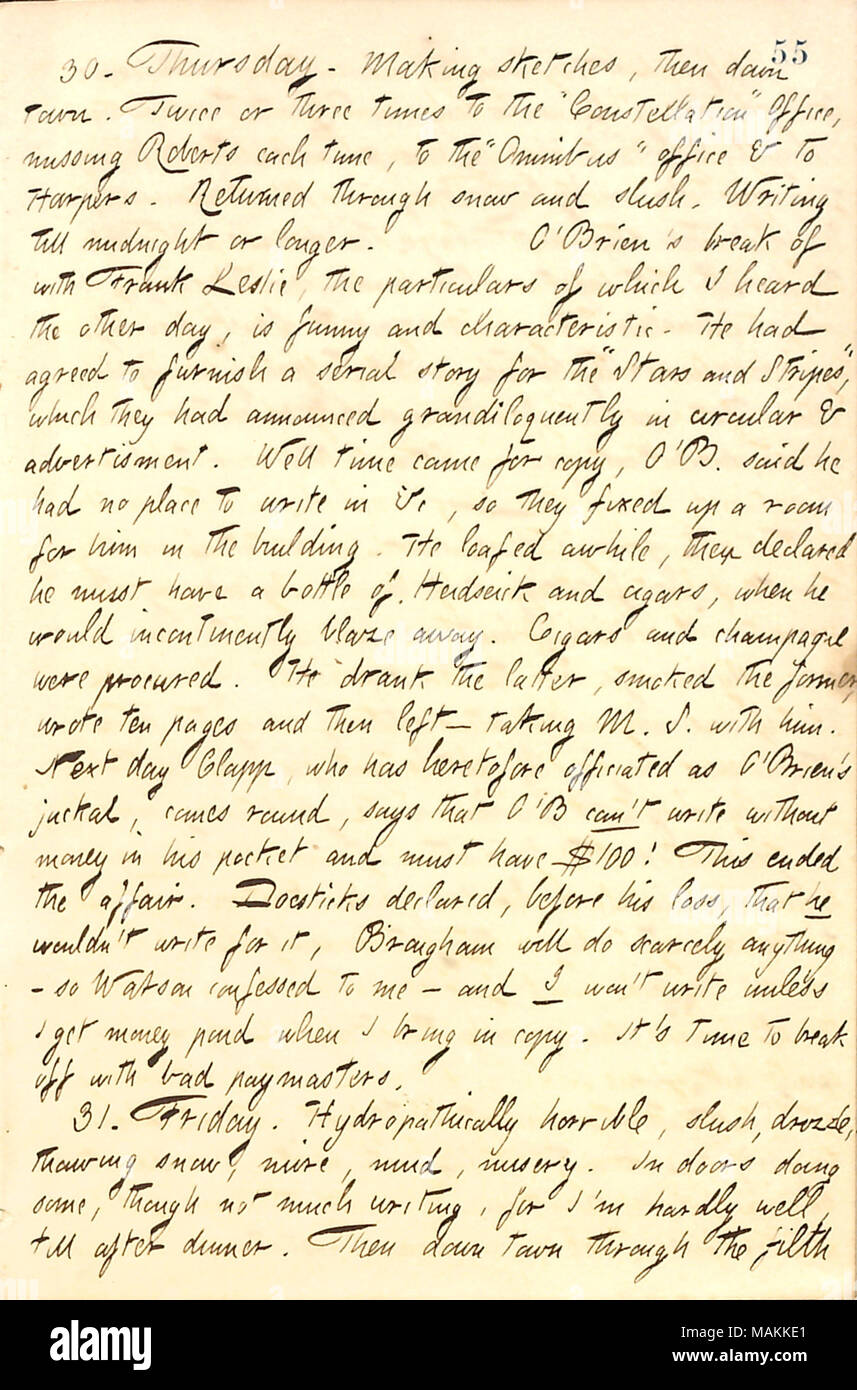 55
30. Thursday. Making sketches, then down
town. Twice or three times to the "Constellation" Office,
missing Roberts each time, to the "Omnibus" office & to
Harpers. Returned through snow and slush. Writing
till midnight or longer. O'Brien's break of
with Frank Leslie, the particulars of which I heard
the other day, is funny and characteristic. He had
agreed to furnish a serial story for the "Stars and Stripes",
which they had announced grandiloquently in circular &
advertisment. Well time came for copy, O'B. said he
had no place to write in &c, so they fixed up a room
for him in the building. He loafed awhile, then declared
he must have a bottle of Heidseick and cigars, when he
would incontinently blaze away. Cigars and champagne
were procured. He drank the latter, smoked the former,
wrote ten pages and then left — taking M. S. with him.
Next day Clapp, who has heretofore officiated as O'Brien's
jackal, comes round, says that O'B can't write without
money in his pocket and must have $100! This ended
the affair. Doesticks declared, before his loss, that he
wouldn't write for it, Brougham will do scarcely anything
- so Watson confessed to me - and I won't write unless
I get money paid when I bring in copy. It's time to break
off with bad paymasters.
31. Friday. Hydropathically horrible, slush, drizzle,
thawing snow, mire, mud, misery. In doors doing
some, though not much writing, for I'm hardly well,
till after dinner. Then down town through the filth
alamy
Image ID: MAKKE1
www.alamy.com